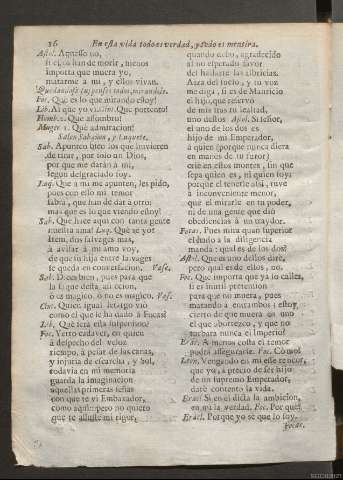 26 En esta vida todo es verdad, y todo es mentira.
Astol. Aquesso no,
si ellos han de morir, menos
importa que muera yo,
matarme a mi, y ellos vivan.
Quedandose suspensos todos, mirandose.
Foc. Què es lo que mirando estoy!
Lib. A què yo Que portento!
Homb. Que assombro!
Muger. Què admiracion!
Salen Sabañon, y Luquete.
Sab. Apunten bien los que huvieren
de tirar, por solo un Dios,
por que me daràn à mi,
segun desgraciado soy.
Luq. Que à mi me apunten, les pido,
pues con esso mi temor
sabrà, que han de dar à otro:
mas què es lo que viendo estoy!
Sab. Què hace aqui con tanta gente
nuestra ama? Luq. Què se yo?
Item, dos salvages mas,
à avisar à mi amo voy,
de que su hija entre salvages
se queda en conversacion. Vase.
Sab. Dices bien, pues para que
la saque desta afliccion,
ò es magico, ò no es magico. Vase.
Cint. Quien igual letargo viò
como el que le ha dado à Focas!
Lib. Què serà esta suspension?
Foc. Yerto cadaver, en quien
à despecho del veloz
tiempo, à pesar de las canas,
y injuria de el yelo, y Sol,
todavia en mi memoria
guarda la imaginacion
aquellas primeras señas
con que te vi Embaxador,
como aqui: pero no quiero
que te assuste mi rigor,
quando debo, agradecido
al no esperado favor
del hallarte las albricias.
Alza del suelo, y tu voz
me diga, si es de Mauricio
el hijo, que reservò
de mis iras tu lealtad,
uno dellos? Astol. Si señor,
el uno de los dos es
hijo de mi Emperador,
à quien (porque nunca diera
en manos de tu furor)
criè en estos montes, sin que
sepa quien es, ni quien soy;
porque el tenerle assi, tuve
à inconveniente menor,
que el mirarle en tu poder,
ni de una gente que diò
obediencias à un traydor.
Focas. Pues mira quan superior
el hado à la diligencia
manda: qual es de los dos?
Astol. Que es uno dellos diré,
pero qual es dellos, no.
Foc. Que importa que ya lo calles,
si es inutil pretension
para que no muera, pues
matando à entrambos, estoy
cierto de que muera en uno
el que aborrezco, y que no
turbara nunca el Imperio?
Eracl. A menos costa el temor
podrà assegurarte. Foc. Còmo?
Leon. Vengando en mi esse rencor,
que yo, à precio de ser hijo
de un supremo Emperador,
darè contento la vida.
Eracl. Si en el dicta la ambicion,
en mi la verdad. Foc. Por què?
Eracl. Porque yo sè que lo soy.
Focas.